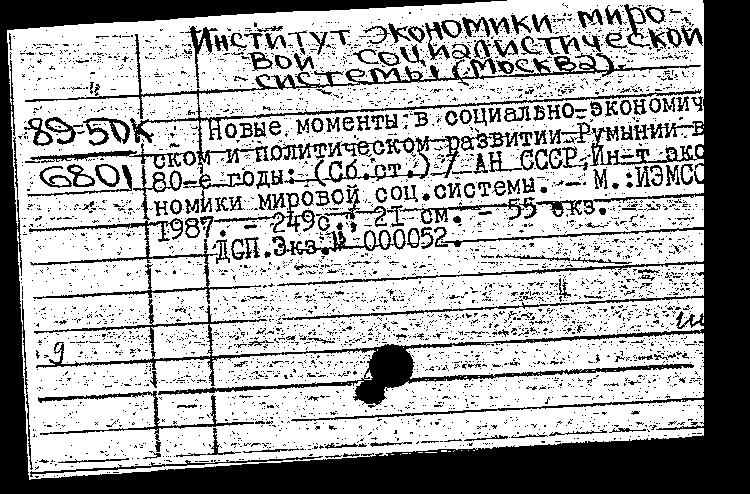 Институт экономики миро-
вой социалистической
системы (Москва).
89-5DK
6801
Новые моменты в социально-экономич
ском и политическом развитии Румынии в
80-е годы: (Сб.ст.) / АН СССР,Ин-т эко
номики мировой соц.системы. - М.:ИЭМСС
1987. - 249с.; 21 см. - 55 экз.
ДСП.Экз.№ 000052.
9
ш